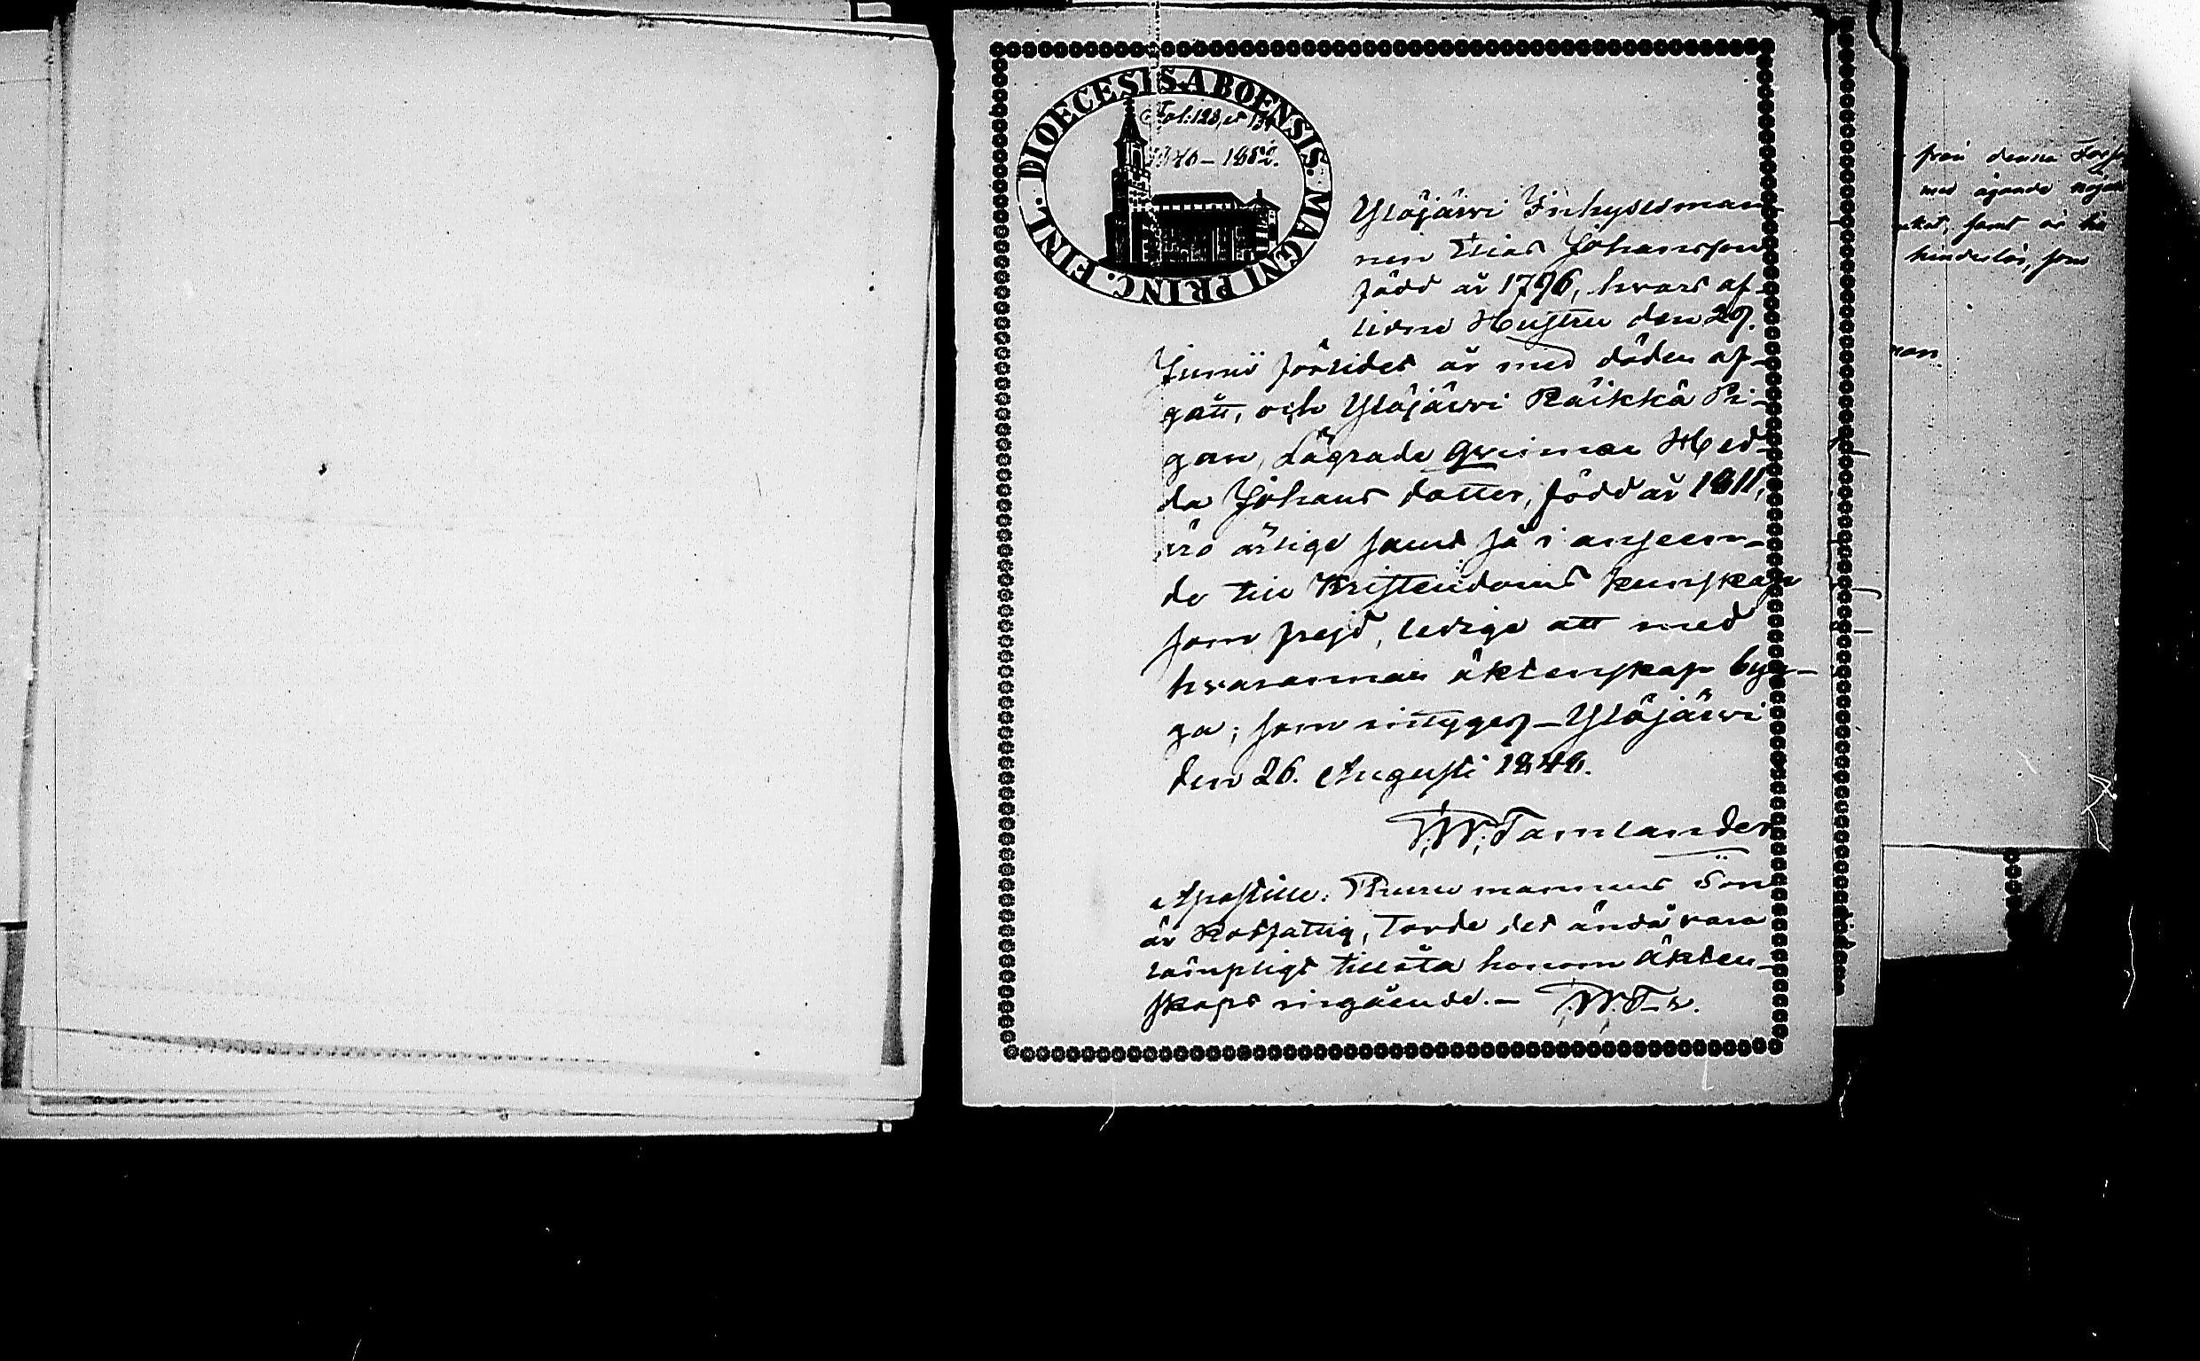 DIOECESIS ABOENSIS. MAGNI PRINC. FINL.
Fol: 128, et
1846 – 1852.
Ylöjärvi Inhysesman
nen Elias Johansson
född år 1796, hvars af-
lidne Hustru den 29.
Junii förlidet år med döden af-
gått, och Ylöjärvi Räikkä Pi-
gan, Lägrade Qvinnan Hed-
da Johans dotter, född år 1811,
äro ärlige samt så i anseen-
de till Kristendoms kunskap
som frejd, ledige att med
hvarannan äktenskap byg-
ga; som intygas – Ylöjärvi
den 26. Augusti 1846.
F. W. Tamlander
Apostille:
är Kostfattig, torde det ändå vara
lämpligt tillåta honom Äkten-
skaps ingående. – F. W. T–r.
från denna
med ägande
samt är
hinderlös, som